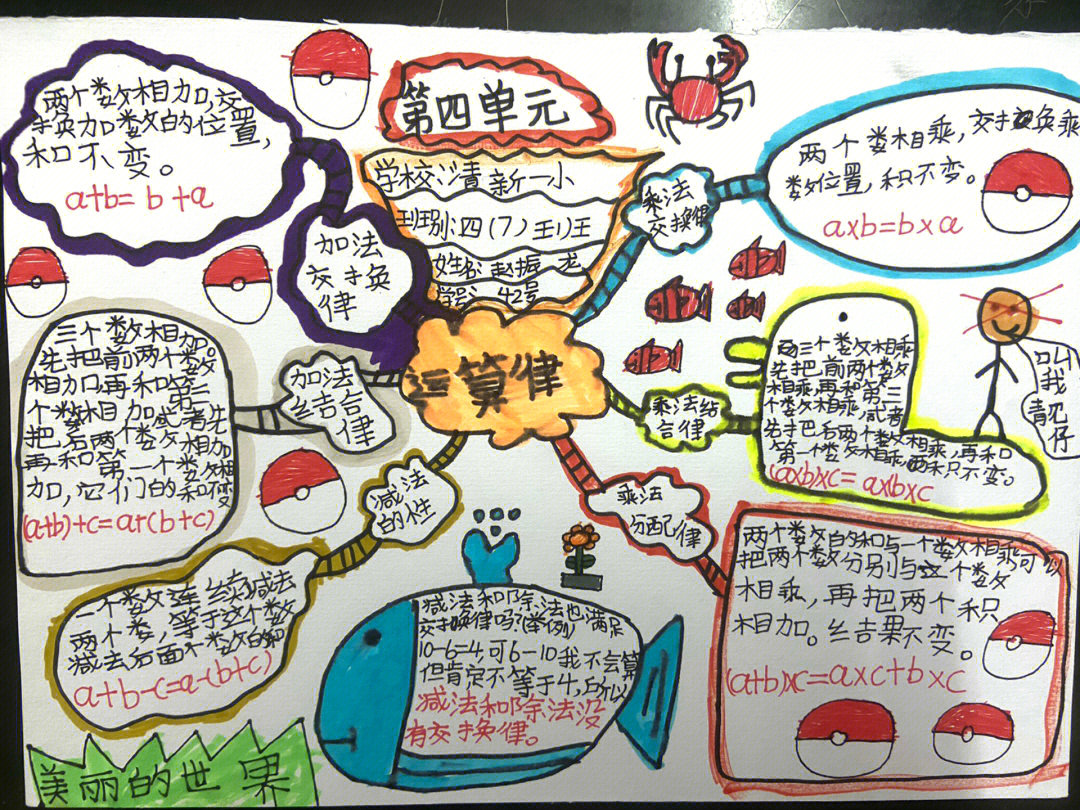 第四单元
学校:清新一小
班别:四(7)班
姓名:赵振龙
学号:42号
运算律
加法
交换
律
两个数相加,交
换加数的位置,
和不变。
a+b=b+a
加法
结合
律
三个数相加。
先把前两个数
相加,再和第三
个数相加,或者先
把后两个数相加
再和第一个数相
加,它们的和不变
(a+b)+c=a+(b+c)
减法
的性
一个数连续减去
两个数,等于这个数
减去后面个数的和
a+b-c=a-(b+c)
乘法
交换律
两个数相乘,交换乘
数位置,积不变。
a×b=b×a
乘法结
合律
三个数相乘
先把前两个数
相乘,再和第三
个数相乘,或者
先把后两个数相乘,再和
第一个数相乘,积不变。
(a×b)×c=a×(b×c
乘法
分配律
两个数的和与一个数相乘可以
把两个数分别与这个数
相乘,再把两个积
相加。结果不变。
(a+b)×c=a×c+b×c
减法和除法也满足
交换律吗?(举例)
10-6=4,可6-10我不会算
但肯定不等于4,所以
减法和除法没
有交换律。
叫
我
靓
仔
美丽的世界